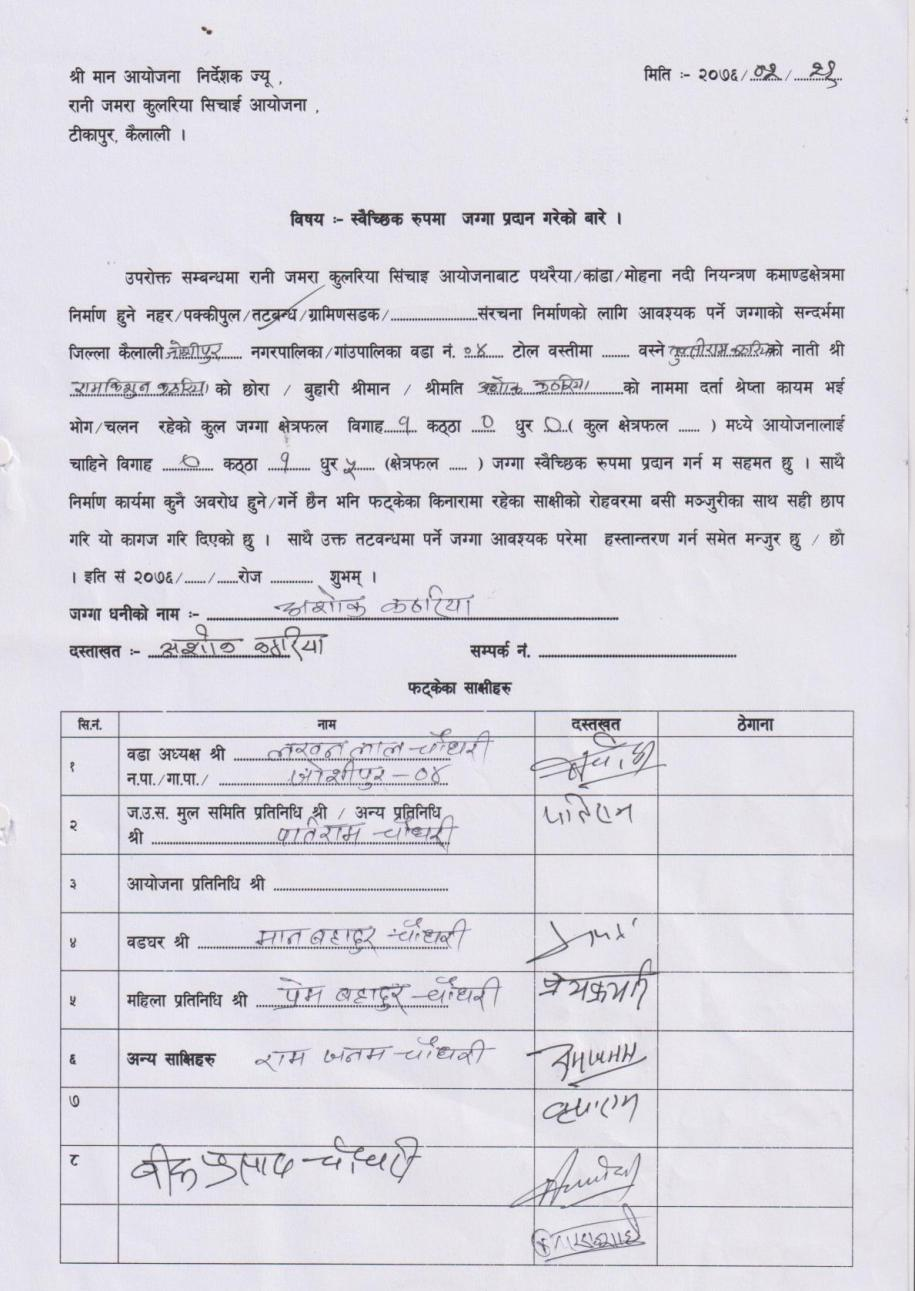 श्री मान आयोजना निर्देशक ज्यू , मिति :- २०७६/०२/२९
रानी जमरा कुलरिया सिचाई आयोजना ,
टीकापुर, कैलाली ।
विषय :- स्वैच्छिक रुपमा जग्गा प्रदान गरेको बारे ।
उपरोक्त सम्बन्धमा रानी जमरा कुलरिया सिंचाइ आयोजनाबाट पथरैया/कांडा/मोहना नदी नियन्त्रण कमाण्डक्षेत्रमा
निर्माण हुने नहर/पक्कीपुल/तटबन्ध/ग्रामिणसडक/..............................संरचना निर्माणको लागि आवश्यक पर्ने जग्गाको सन्दर्भमा
जिल्ला कैलाली जोशीपुर नगरपालिका/गांउपालिका वडा नं. ०४ टोल वस्तीमा ........ वस्ने को नाती श्री
रामकिशुन कठरिया को छोरा / बुहारी श्रीमान / श्रीमति अशोक कठरिया को नाममा दर्ता श्रेष्ता कायम भई
भोग/चलन रहेको कुल जग्गा क्षेत्रफल विगाह १ कठ्ठा 0 धुर 0 ( कुल क्षेत्रफल ...... ) मध्ये आयोजनालाई
चाहिने विगाह 0 कठ्ठा १ धुर ५ (क्षेत्रफल ..... ) जग्गा स्वैच्छिक रुपमा प्रदान गर्न म सहमत छु । साथै
निर्माण कार्यमा कुनै अवरोध हुने/गर्ने छैन भनि फट्केका किनारामा रहेका साक्षीको रोहवरमा बसी मञ्जुरीका साथ सही छाप
गरि यो कागज गरि दिएको छु । साथै उक्त तटवन्धमा पर्ने जग्गा आवश्यक परेमा हस्तान्तरण गर्न समेत मन्जुर छु / छौ
। इति सं २०७६/....../......रोज ............ शुभम् ।
जग्गा धनीको नाम :- अशोक कठरिया
दस्ताखत :- अशोक कठरिया सम्पर्क नं. ........................................
फट्केका साक्षीहरु
सि.नं. नाम दस्तखत ठेगाना
१ वडा अध्यक्ष श्री लखन लाल चौधरी
न.पा./गा.पा./ जोशीपुर - ०४
२ ज.उ.स. मुल समिति प्रतिनिधि श्री / अन्य प्रतिनिधि
श्री पातिराम चौधरी पातिराम
३ आयोजना प्रतिनिधि श्री ........................................
४ वडघर श्री मान बहादुर चौधरी
५ महिला प्रतिनिधि श्री प्रेम बहादुर चौधरी
६ अन्य साक्षिहरु राम जनम चौधरी रामजनम
७
८ प्रसाद चौधरी